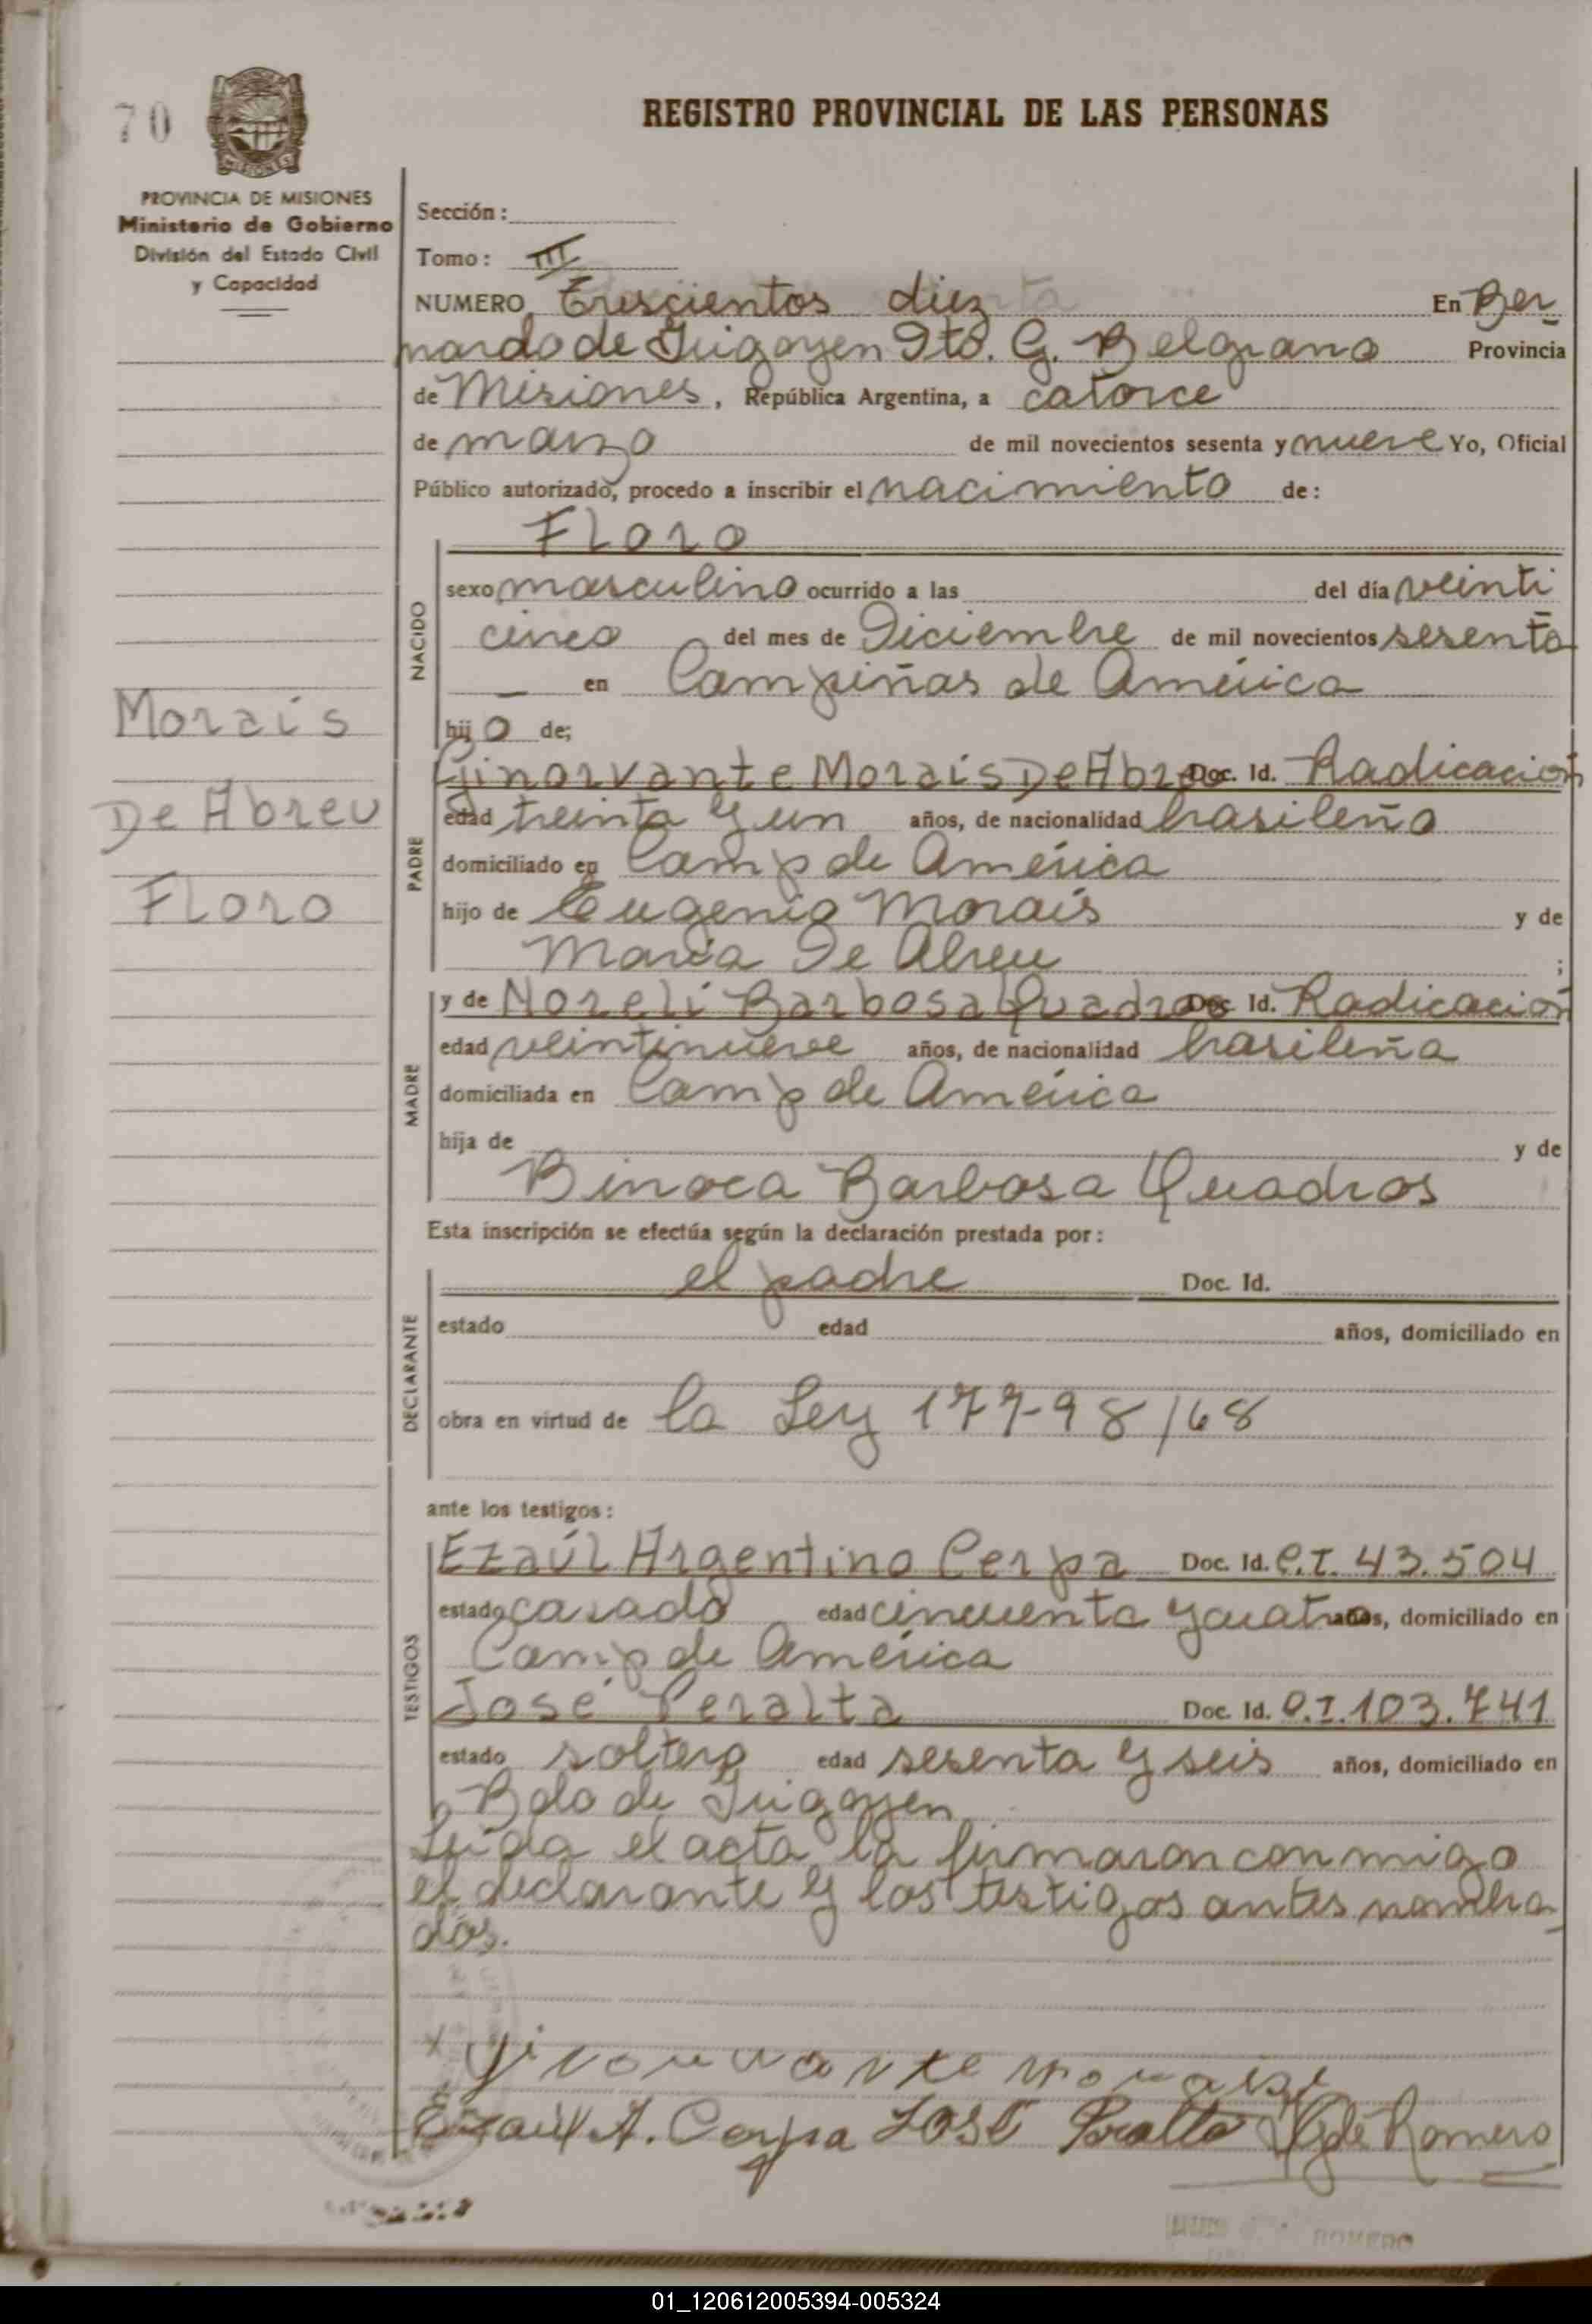 70
REGISTRO PROVINCIAL DE LAS PERSONAS
PROVINCIA DE MISIONES
Ministerio de Gobierno
División del Estado Civil
y Capacidad
Morais
De Abreu
Floro
Sección :
Tomo : III
NUMERO Trescientos diez En Ber
nardo de Irigoyen Dto. G. Belgrano Provincia
de Misiones, República Argentina, a catorce
de marzo de mil novecientos sesenta y nueve Yo, Oficial
Público autorizado, procedo a inscribir el nacimiento de :
Floro
NACIDO
sexo masculino ocurrido a las del día veinti
cinco del mes de Diciembre de mil novecientos sesenta
— en Campiñas de América
hijo de;
PADRE
Ginorvante Morais De Abreu Doc. Id. Radicación
edad treinta y un años, de nacionalidad brasileño
domiciliado en Camp de América
hijo de Eugenio Morais y de
Maria De Abreu ;
MADRE
y de Noreli Barbosa Quadros Doc. Id. Radicación
edad veintinueve años, de nacionalidad brasileña
domiciliada en Camp de América
hija de y de
Binoca Barbosa Quadros
Esta inscripción se efectúa según la declaración prestada por :
DECLARANTE
el padre Doc. Id.
estado edad años, domiciliado en
obra en virtud de la Ley 177-98/68
ante los testigos :
TESTIGOS
Ezaúl Argentino Cerpa Doc. Id. C.I. 43.504
estado casado edad cincuenta y cuatro años, domiciliado en
Camp de América
José Peralta Doc. Id. C.I. 103.741
estado soltero edad sesenta y seis años, domiciliado en
Bdo de Irigoyen
Leida el acta la firmaron conmigo
el declarante y los testigos antes nombra
dos.
x Ginorwante Morais
Ezaúl A. Cerpa JOSE Peralta de Romero
ROMERO
01_120612005394-005324